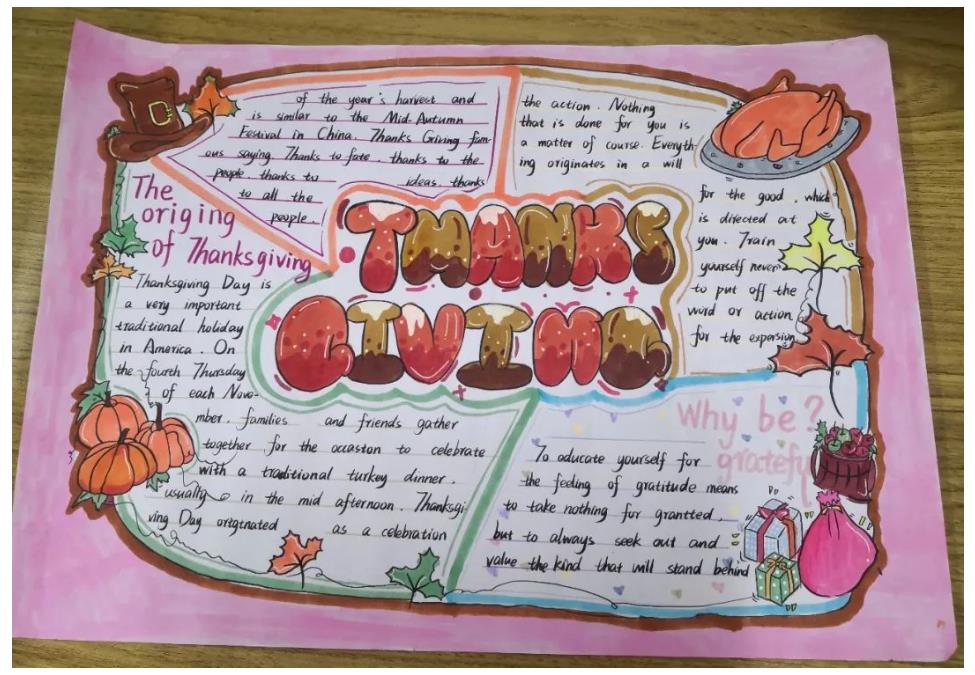 THANKS
GIVING
The
origing
of Thanksgiving
Thanksgiving Day is
a very important
traditional holiday
in America. On
the fourth Thursday
of each Nove-
mber, families and friends gather
together for the occaston to celebrate
with a traditional turkey dinner.
usually in the mid afternoon. Thanksgi-
ving Day ortginated as a celebration
of the year's harvest and
is similar to the Mid-Autumn
Festival in China. Thanks Giving fam-
ous saying. Thanks to fate, thanks to the
people, thanks to ideas, thanks
to all the
people.
Why be?
grateful
To oducate yourself for
the feeling of gratitude means
to take nothing for grantted,
but to always seek out and
value the kind that will stand behind
the action. Nothing
that is done for you is
a matter of course. Everyth-
ing originates in a will
for the good, which
is directed at
you. Train
yourself never
to put off the
word or action
for the expersion